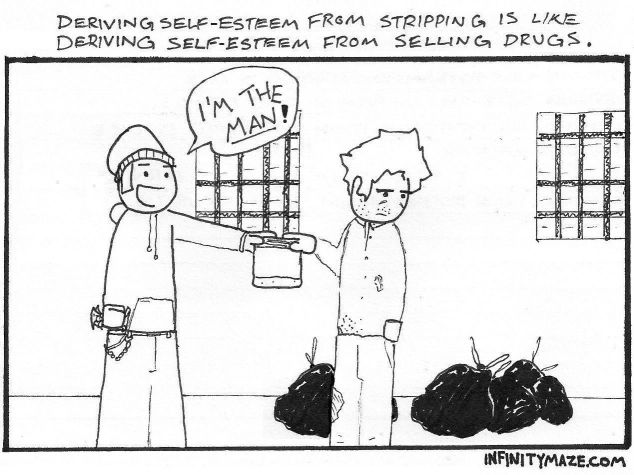 DERIVING SELF-ESTEEM FROM STRIPPING IS LIKE
DERIVING SELF-ESTEEM FROM SELLING DRUGS.
I'M THE
MAN!
INFINITYMAZE.COM